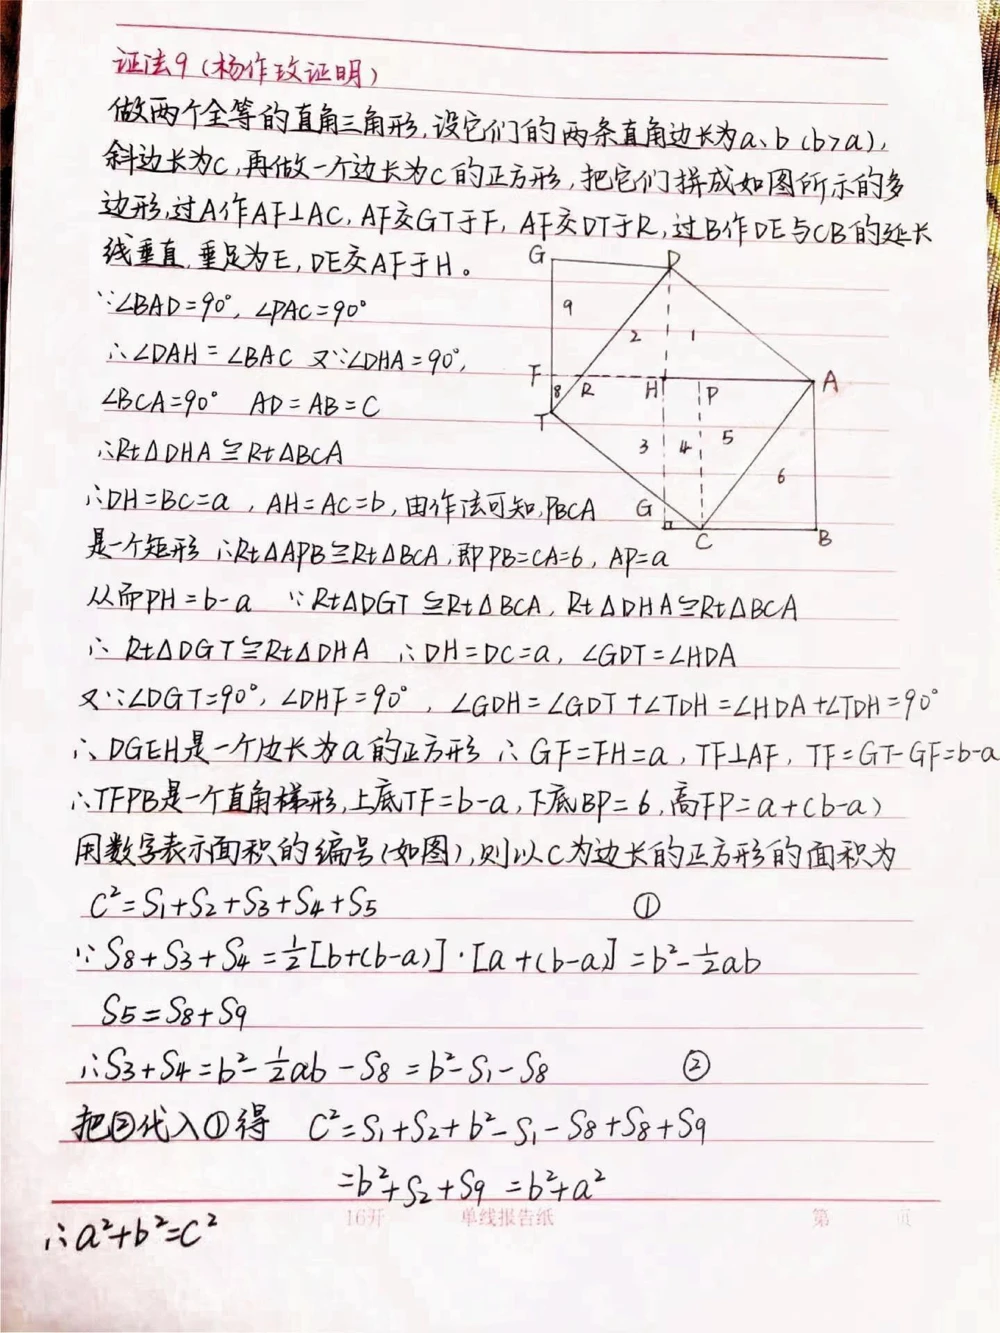 证法9(杨作玫证明)
做两个全等的直角三角形,设它们的两条直角边长为a、b(b>a),
斜边长为C,再做一个边长为C的正方形,把它们拼成如图所示的多
边形,过A作AF⊥AC,AF交GT于F,AF交DT于R,过B作DE与CB的延长
线垂直,垂足为E,DE交AF于H。
G D
9 2 1
F R H P A
8
T 3 4 5
6
G C B
∵∠BAD=90°,∠PAC=90°
∴∠DAH=∠BAC 又∵∠DHA=90°,
∠BCA=90° AD=AB=C
∴Rt△DHA≌Rt△BCA
∴DH=BC=a,AH=AC=b,由作法可知,PBCA
是一个矩形 ∴Rt△APB≌Rt△BCA,即PB=CA=6,AP=a
从而PH=b-a ∵Rt△DGT≌Rt△BCA,Rt△DHA≌Rt△BCA
∴ Rt△DGT≌Rt△DHA ∴DH=DC=a,∠GDT=∠HDA
又∵∠DGT=90°,∠DHF=90°,∠GDH=∠GDT+∠TDH=∠HDA+∠TDH=90°
∴DGEH是一个边长为a的正方形 ∴GF=FH=a,TF⊥AF,TF=GT-GF=b-a
∴TFPB是一个直角梯形,上底TF=b-a,下底BP=6,高FP=a+(b-a)
用数字表示面积的编号(如图),则以C为边长的正方形的面积为
C²=S₁+S₂+S₃+S₄+S₅ ①
∵S₈+S₃+S₄=½[b+(b-a)]·[a+(b-a)]=b²-½ab
S₅=S₈+S₉
∴S₃+S₄=b²-½ab-S₈=b²-S₁-S₈ ②
把②代入①得 C²=S₁+S₂+b²-S₁-S₈+S₈+S₉
=b²+S₂+S₉=b²+a²
16开 单线报告纸 第 页
∴a²+b²=C²